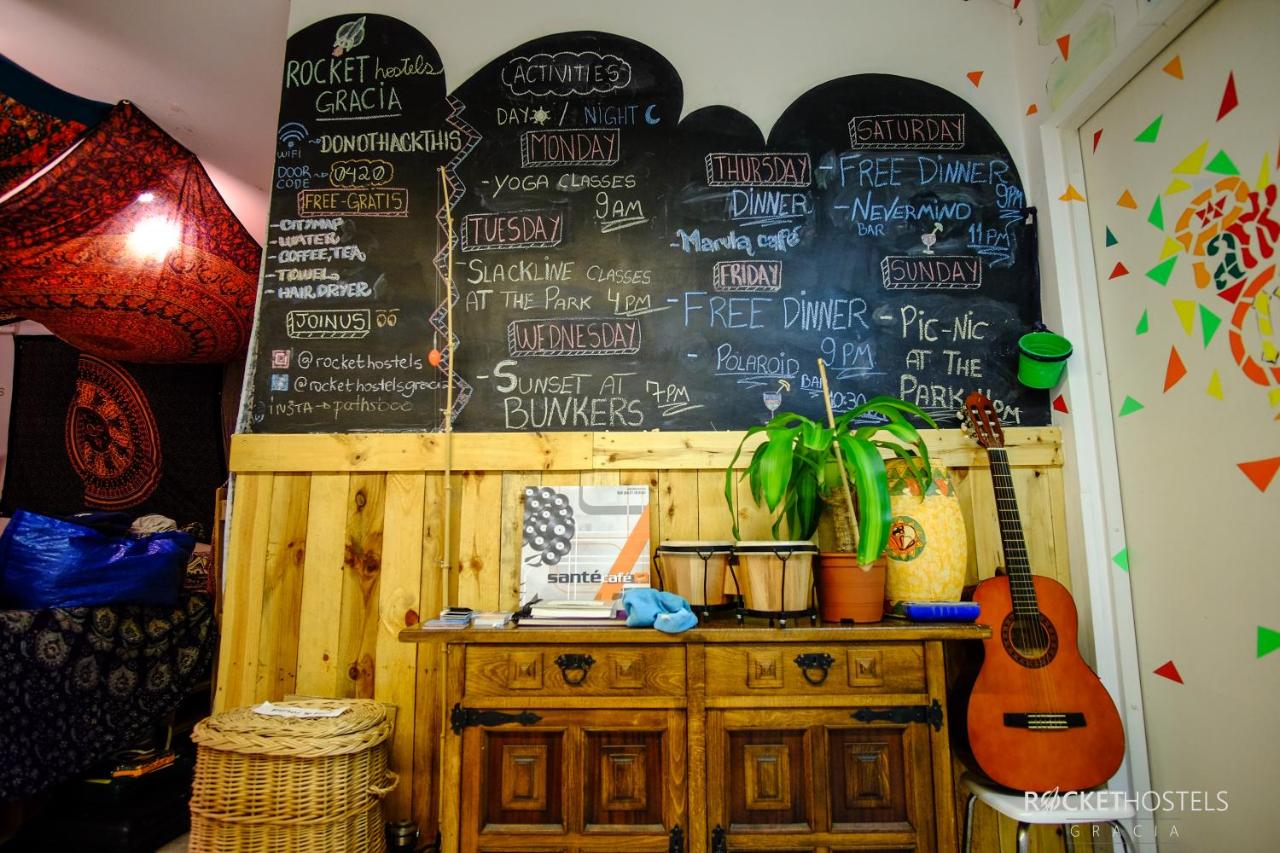 ROCKET hostels
GRACIA
WIFI DONOTHACKTHIS
DOOR CODE 0420
FREE-GRATIS
- CITYMAP
- WATER
- COFFEE, TEA,
- TOWEL
- HAIR DRYER
JOIN US
@rockethostels
@rockethostelsgracia
INSTA → paths
ACTIVITIES
DAY / NIGHT
MONDAY
- YOGA CLASSES
9AM
TUESDAY
SLACKLINE CLASSES
AT THE PARK 4PM
WEDNESDAY
- SUNSET AT
BUNKERS 7PM
THURSDAY
DINNER
- Marula café
FRIDAY
- FREE DINNER
9PM
- POLAROID
BAR
10:30
SATURDAY
- FREE DINNER
9PM
- NEVERMIND
BAR
11PM
SUNDAY
- PIC-NIC
AT THE
PARK
santé café
ROCKETHOSTELS
GRACIA